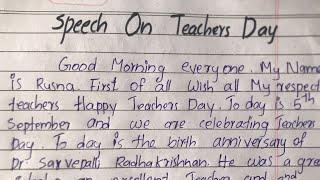 Speech On Teachers Day
Good Morning everyone. My Name
is Rusna. First of all wish all My respect
teachers Happy Teachers Day. To day is 5th
September and we are celebrating Teachers
Day. To day is the birth anniversary of
Dr. Sarvepalli Radhakrishnan. He was a grea
an excellent Teacher and and